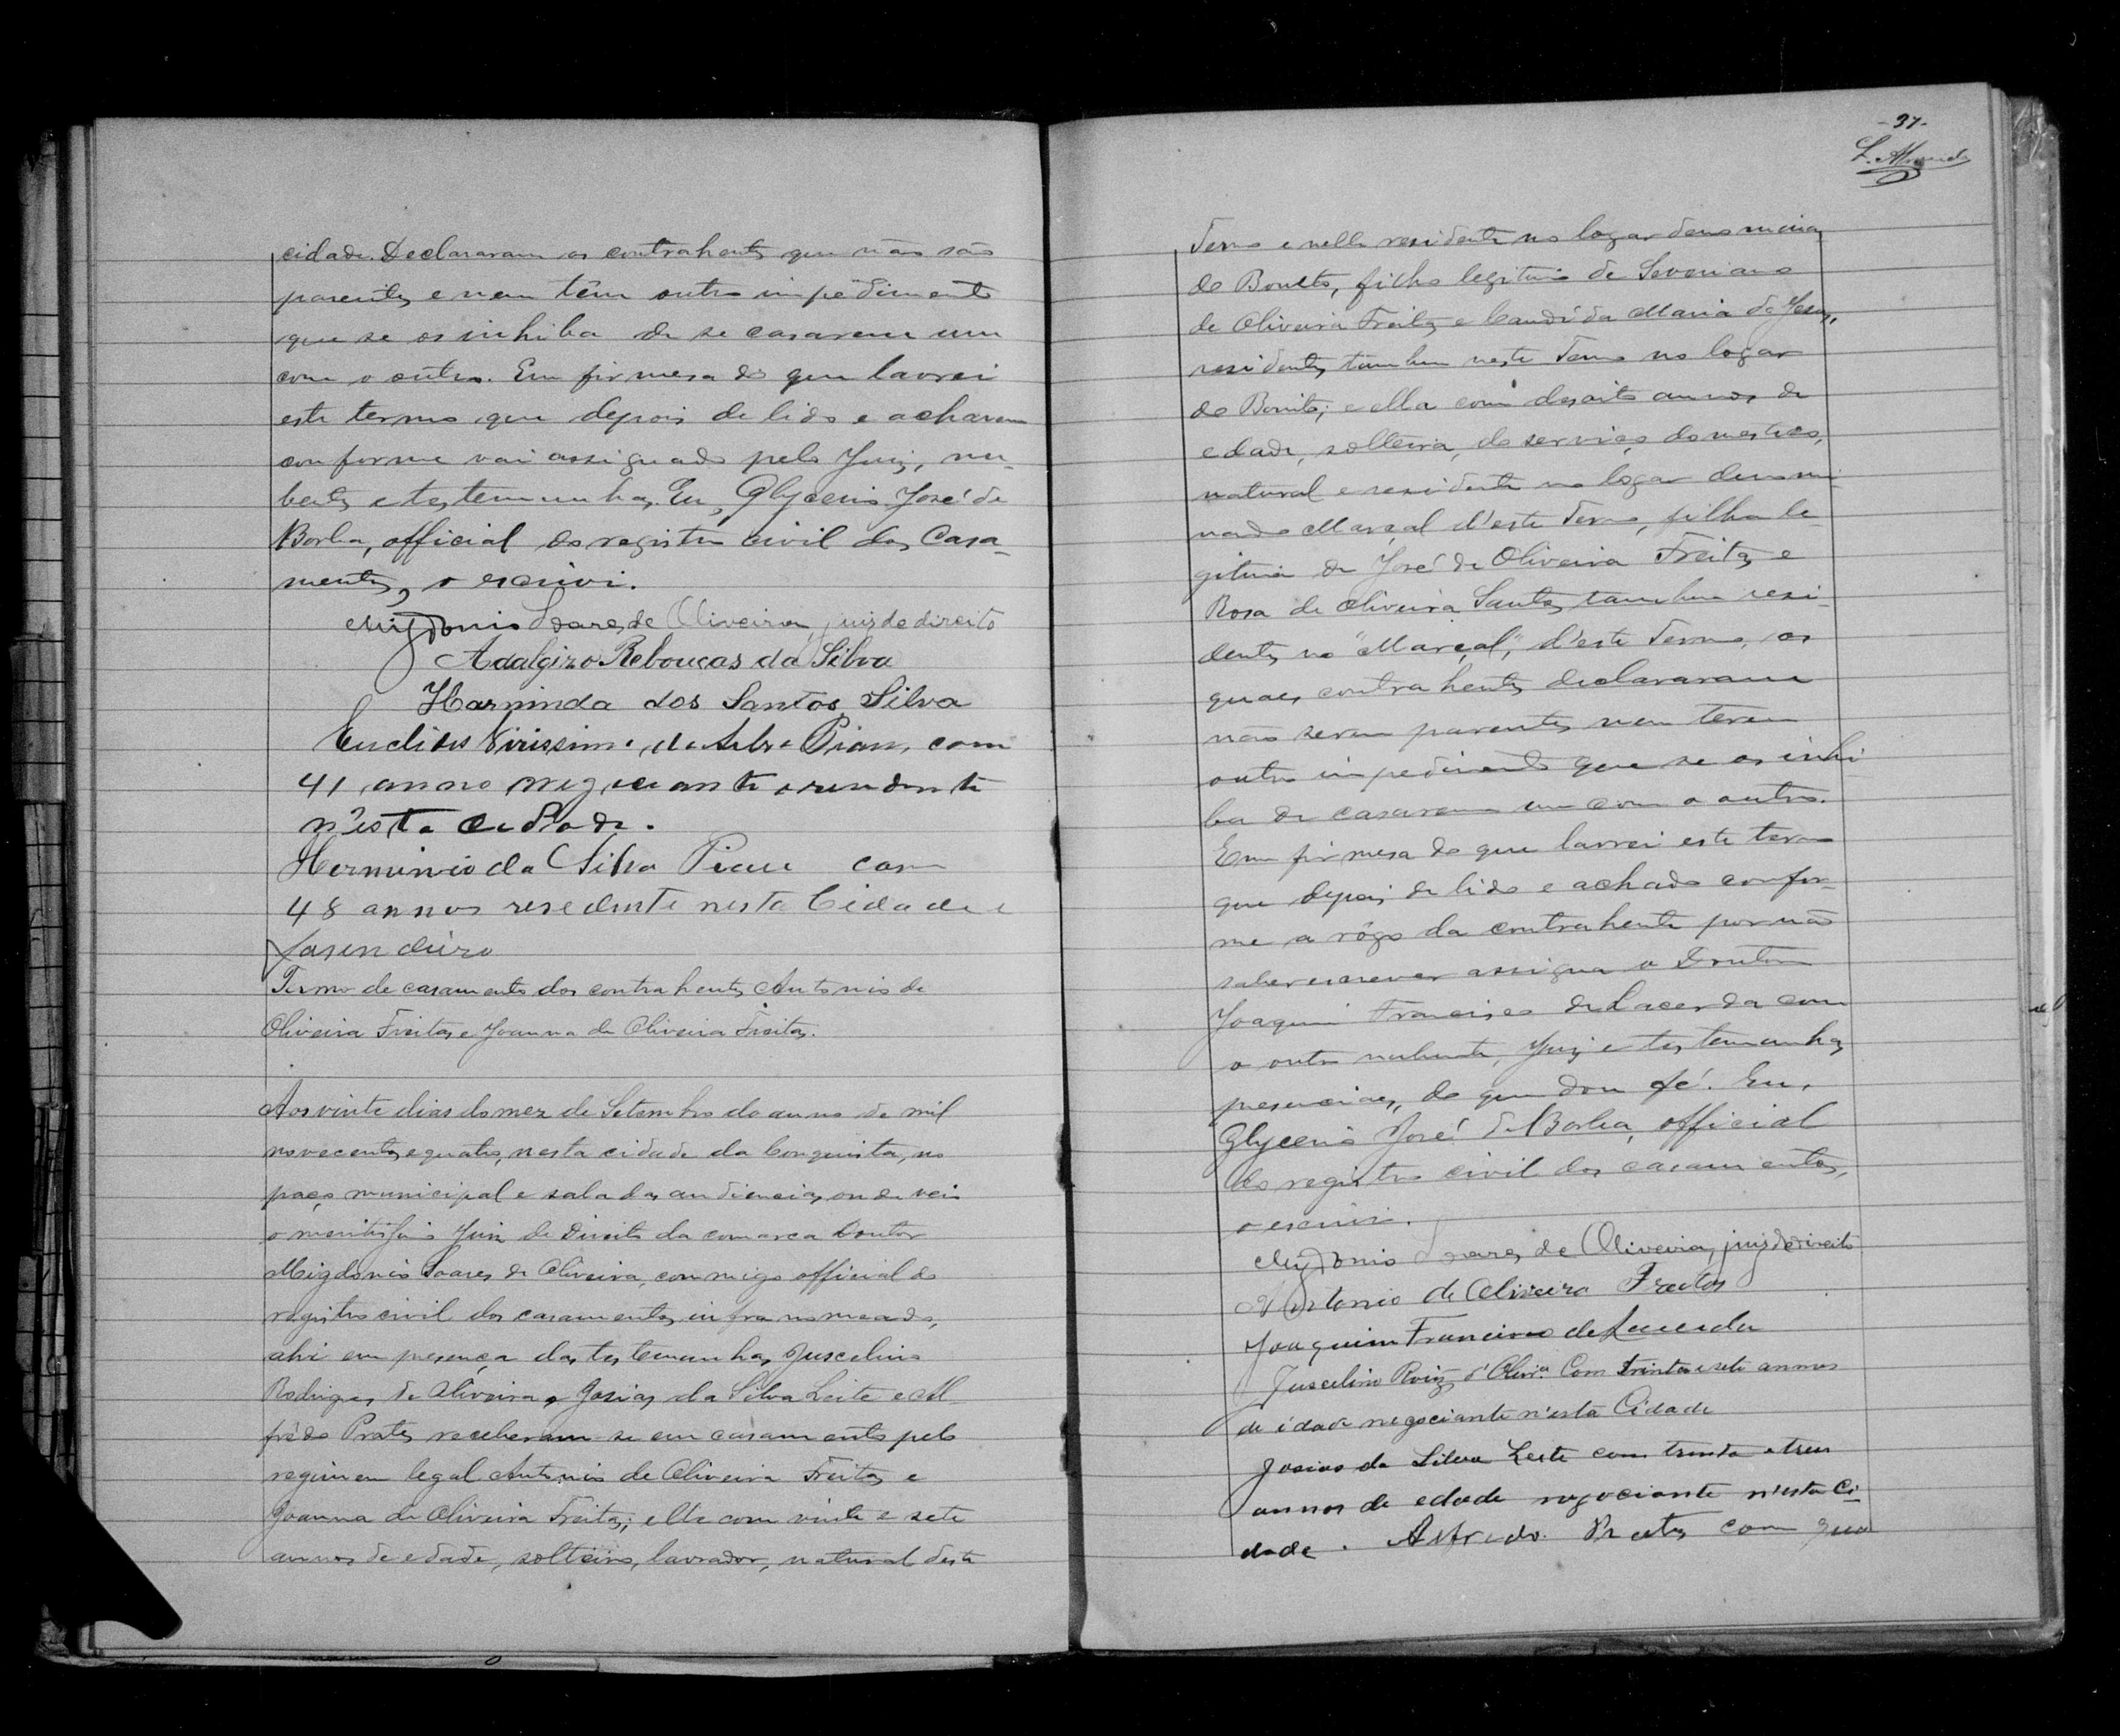 cidade. Declararam os contrahentes que não são
parentes e nem têm outro impedimento
que se os inhiba de se casarem um
com o outro. Em firmesa do que lavrei
este termo que depois de lido e acharem
conforme vai assignado pelo Juiz, nu-
bentes e testemunhas. Eu, Glycerio José de
Borba, official do registro civil dos Casa-
mentos, o escrivi.
Migdonio Soares de Oliveira, juis de direito
Adalgizo Rebouças da Silva
Harminda dos Santos Silva
Euclides Virissimo da Silva Piau, com
41 annos negociante e residente
n'esta cidade.
Herminio da Silva Piau com
48 annos resedente nesta Cidade e
fasendeiro
Termo de casamento dos contrahentes Antonio de
Oliveira Freitas e Joanna de Oliveira Freitas.
Aos vinte dias do mez de Setembro do anno de mil
novecentos e quatro, nesta cidade da Conquista, no
paço municipal e sala das audiencias, onde veio
o meritissimo Juiz de Direito da comarca Doutor
Migdonio Soares de Oliveira, commigo official do
registro civil dos casamentos, infra nomeado,
ahi em presença das testemunhas, Juscelino
Rodrigues de Oliveira, Josias da Silva Leite e Al-
frêdo Prates receberam-se em casamento pelo
regimem legal Antonio de Oliveira Freitas e
Joanna de Oliveira Freitas; elle com vinte e sete
annos de edade, solteiro, lavrador, natural deste
-37-
Termo e nelle residente no logar denomina
do Bonito, filho legitimo de Severiano
de Oliveira Freitas e Candida Maria de Jesus,
residentes tambem neste Termo no logar
do Bonito; e ella com desoito annos de
edade, solteira, do serviço domestico,
natural e residente no logar denomi-
nado Marçal d'este Termo, filha le-
gitima de José de Oliveira Freitas e
Rosa de Oliveira Santos, tambem resi-
dentes no "Marçal", d'este Termo, os
quaes contrahentes declararam
não serem parentes nem terem
outro impedimento que se os inhi
ba de casarem um com o outro.
Em firmesa do que lavrei este termo
que depois de lido e achado confor-
me a rôgo da contrahente por não
saber escrever assigna o Doutor
Joaquim Francisco de Lacerda com
o outro nubente, Juiz e testemunhas
presenciaes, do que dou fé. Eu,
Glycerio José de Borba, official
do registro civil dos casamentos,
o escrivi.
Migdonio Soares de Oliveira, juis de direito
Antonio de Oliveira Freitas
Joaquim Francisco de Lacerda
Juscelino Roiz d'Olivrª Com trinta e sete annos
de idade negociante n'esta Cidade
Josias da Silva Leite com trinta e tres
annos de edade negociante n'esta Ci-
dade. Alfredo Prates com qua